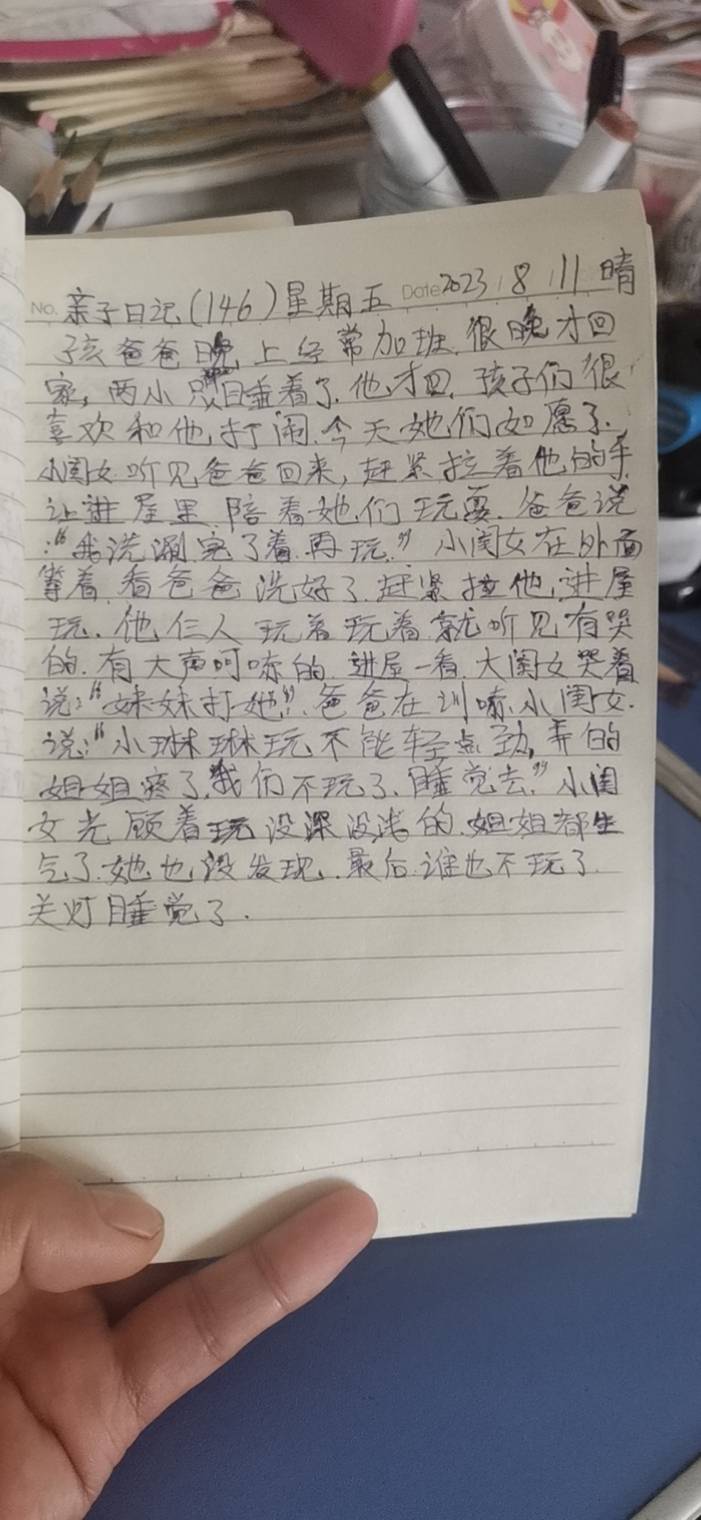 No. 亲子日记(146)星期五 Date 2023 / 8 / 11 晴
孩爸爸晚上经常加班.很晚才回
家,两小只睡着了.他才回.孩子们很
喜欢和他打闹.今天她们如愿了.
小闺女听见爸爸回来,赶紧拉着他的手
让进屋里陪着她们玩耍.爸爸说
:“我洗涮完了着.再玩.”小闺女在外面
等着.看爸爸洗好了.赶紧拉他进屋
玩.他仨人玩着玩着就听见有哭
的.有大声呵嗦的.进屋一看.大闺女哭着
说:“妹妹打她”.爸爸在训嗦小闺女.
说:“小琳琳玩不能轻点劲,弄的
姐姐疼了.我们不玩了.睡觉去.”小闺
女光顾着玩没深没浅的.姐姐都生
气了.她也没发现.最后谁也不玩了.
关灯睡觉了.